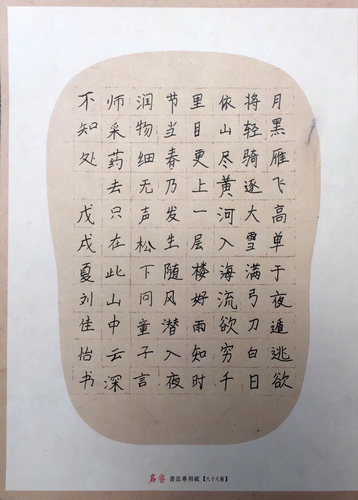 月黑雁飞高单于夜遁逃欲
将轻骑逐大雪满弓刀白日
依山尽黄河入海流欲穷千
里目更上一层楼好雨知时
节当春乃发生随风潜入夜
润物细无声松下问童子言
师采药去只在此山中云深
不知处 戊戌夏刘佳怡书
名睿 書法專用紙【八十八格】